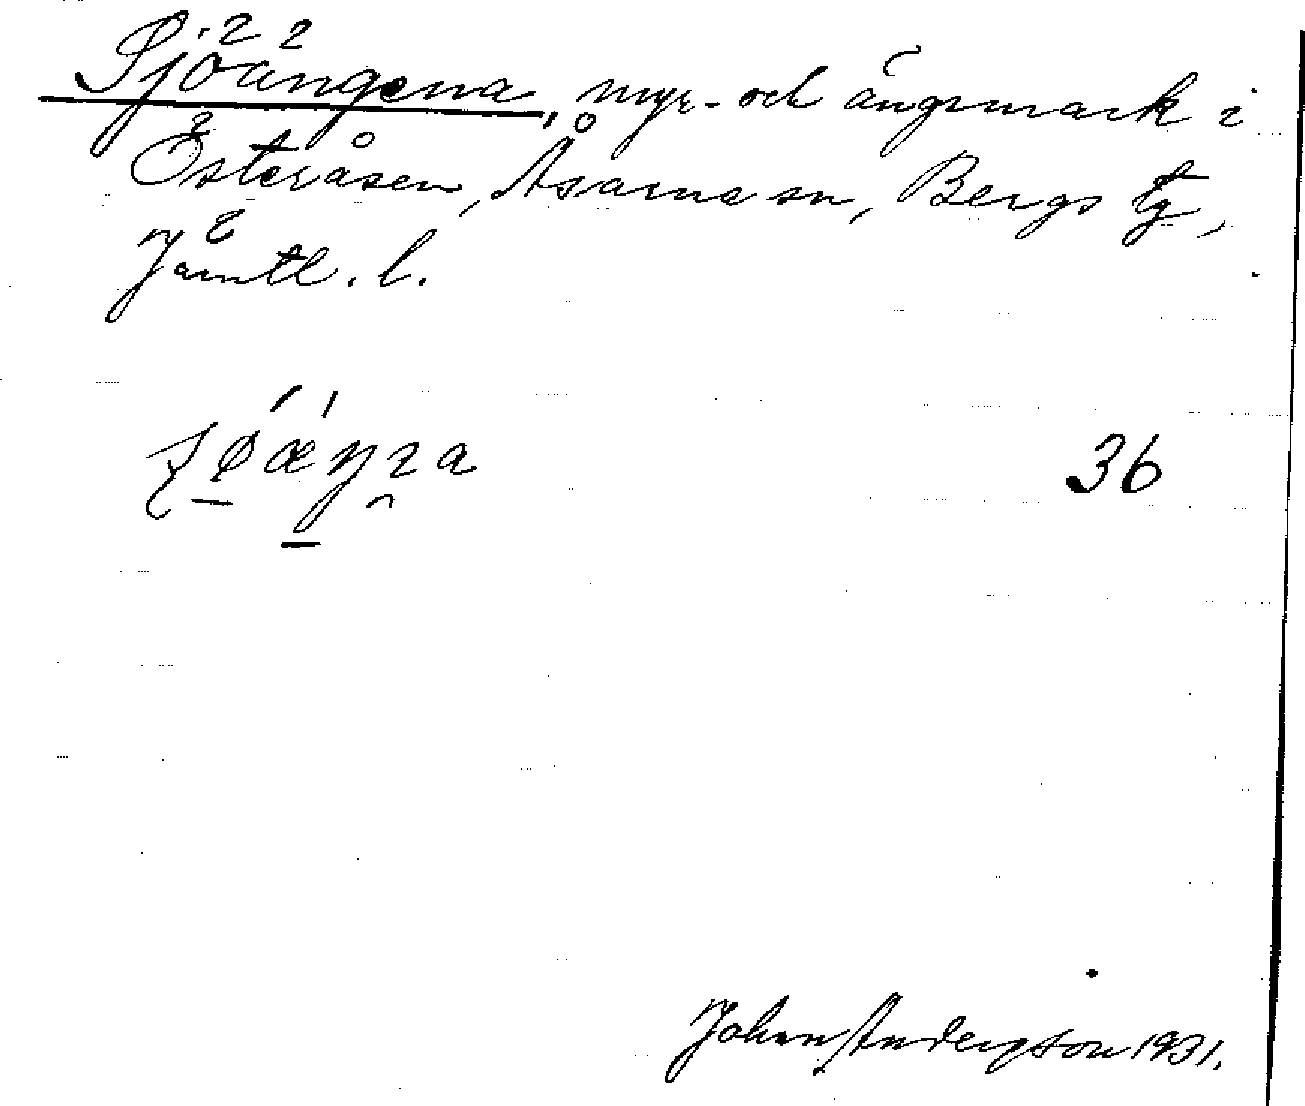 Sjöängena, myr- och ängsmark i
Österåsen, Åsarna sn, Bergs tg,
Jämtl. l.
36
Johan Anderson 1931.